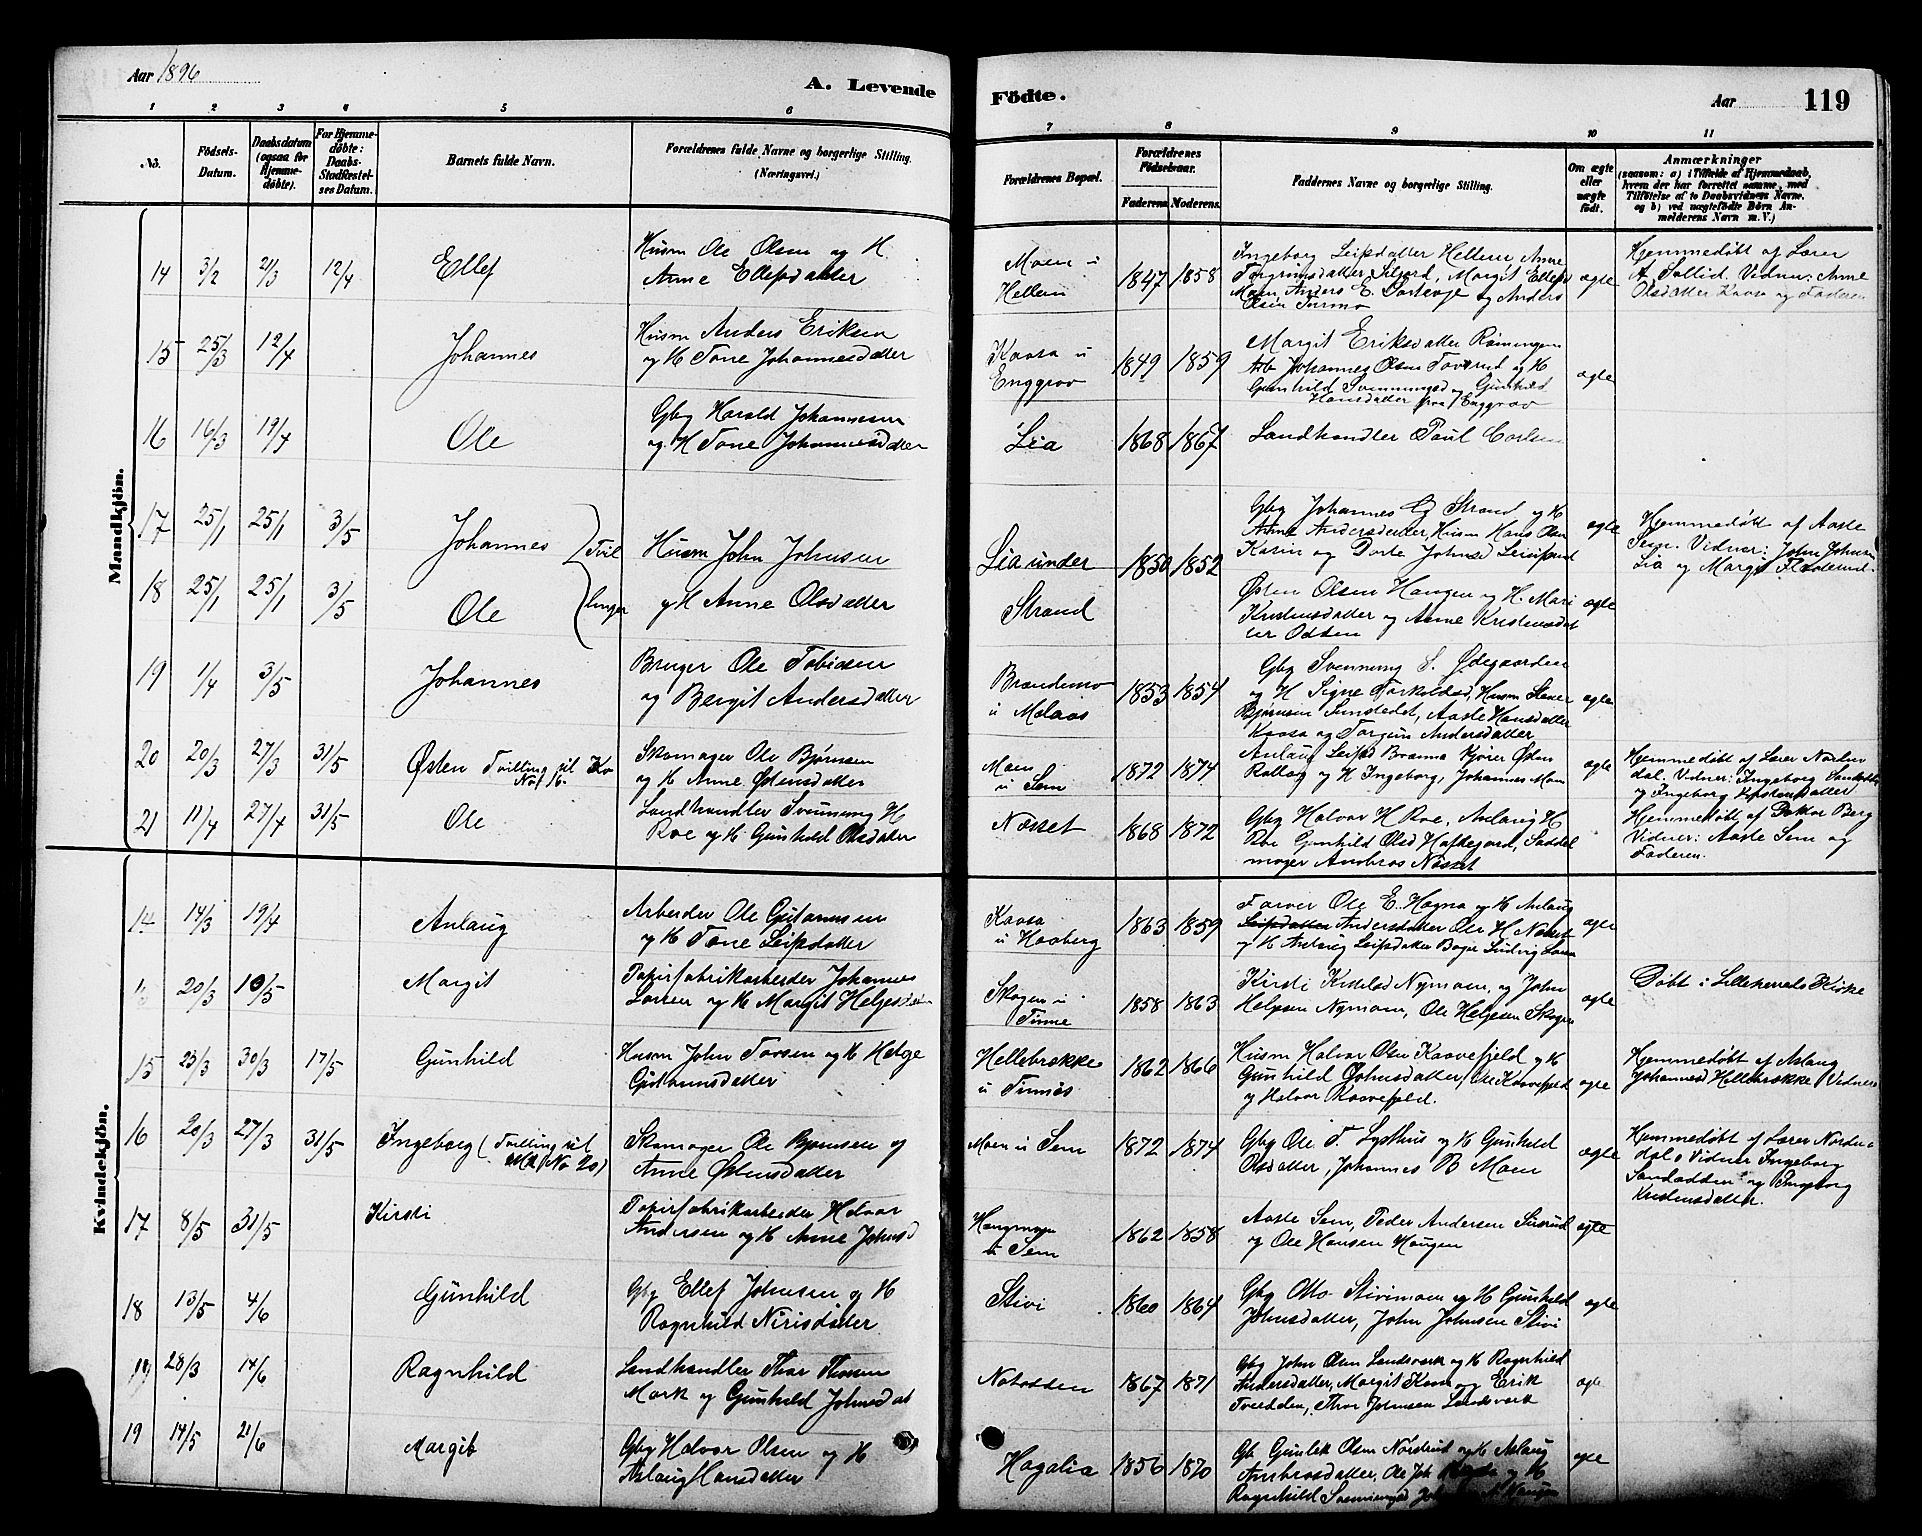 Aar 1896
A. Levende
Födte.
Aar
119
1 2 3 4 5 6 7 8 9 10 11
No.
Födsels-Datum.
Daabsdatum (ogsaa for Hjemme-döbte).
For Hjemme-döbte: Daabs-Stadfæstel-ses Datum.
Barnets fulde Navn.
Forældrenes fulde Navne og borgerlige Stilling.
(Næringsvei.)
Forældrenes Bopæl.
Forældrenes Födselsaar.
Faderens Moderens
Faddernes Navne og borgerlige Stilling.
Om ægte eller uægte födt.
Anmærkninger
(saasom: a) i Tilfælde af Hjemmedaab,
hvem der har forrettet samme, med
Tilföielse af to Daabsvidners Navne.
og b) ved uægtefödte Börn An-
melderens Navn m. V.)
Mandkjön.
14 3/2 2/3 12/4 Ellef
Husm Ole Olsen og H.
Anne Ellefsdatter
Moen u
Hellem
1847 1858
Ingeborg Leifsdatter Hellem Anne
Torgrimsdatter, Margit Ellefsd
Moen Anders E. og Anders
Olsen
ægte
Hjemmedøbt af Lærer
A Sollid. Vidner: Anne
Olsdatter Kaasa og Faderen
15 25/3 12/4 Johannes
Husm Anders Eriksen
og H Tone Johannesdatter
Kaasa u
Enggrav
1849 1859
Margit Eriksdatter Rømingen
Arb Johannes Olsen og H
Gunhild Svenningsd og Gunhild
Hansdatter fra Enggrav
ægte
16 16/3 19/4 Ole
Gbg Harald Johannesen
og H Tone Johannesdatter
Lia
1868 1867
Landhandler Paul Carlsen
17 25/1 25/1 3/5 Johannes
Tvil
Husm John Johnsen
Lia under
1850 1852
Gbg Johannes G Strand og H
Anne Andersdatter Husm Hans Olsen
Karin og Dorte Johnsd
ægte
Hjemmedøbt af Aaste
Sem. Vidner: John Johnsen
Lia og Margit
18 25/1 25/1 3/5 Ole
linger
og H Anne Olsdatter
Strand
Østen Olsen Haugen og H. Mari
Kristensdatter og Anne Kristensdat
ter Odden
ægte
19 1/4 3/5 Johannes
Bruger Ole Tobiasen
og Bergit Andersdatter
Brandemo
u Melaas
1853 1854
Gbg Svenning S. Ødegaarden
og H Signe Torkildsd, Husm
Bjørnsen, Aaste Hansdatter
Kaasa og Torgun Andersdatter
ægte
20 20/3 27/3 31/5 Østen Tvilling til Kv
No 16.
Skomager Ole Bjørnsen
og H Anne Østensdatter
Moen
u Sem
1872 1874
Anlaug Leifsd Østen
og H Ingeborg, Johannes Moen
ægte
Hjemmedøbt af Lærer Norden
dal. Vidner: Ingeborg
og Ingeborg Kristensdatter
21 11/4 27/4 31/5 Ole
Landhandler Svenning H
Roe og H. Gunhild Olsdatter
Næsset
1868 1872
Gbg Halvor H Roe, Anlaug H
Roe Gunhild Olsd Haftegaard, Saddel
mager Ambros Næsset
Hjemmedøbt af Doktor Berg
Vidner: Aaste Sem og
Faderen.
Kvindekjön.
14 14/3 19/4 Anlaug
Arbeider Ole Guttormsen
og H Tone Leifsdatter
Kaasa
u Haaberg
1863 1859
Farver Ole E. Hogna og H Aslaug
Leifsdatter Andersdatter Ole H Næset
og H Anlaug Leifsdatter Bager Ludvig
ægte
20/3 10/5 Margit
Papirfabrikarbeider Johannes
Larsen og H Margit Helgesdatter
Skogen u
Tinne
1858 1863
Kirsti Nymoen, og John
Helgesen Nymoen, Ole Helgesen Skogen
ægte
Døbt i Lilleherreds Kirke
15 23/3 30/3 17/5 Gunhild
Husm John Torsen og H Helge
Guttormsdatter
Hellebrække
u Tinnes
1862 1866
Husm Halvor Olsen Kaavefjeld og H
Gunhild Johnsdatter, Ole Kaavefjeld
og Halvor Kaavefjeld.
ægte
Hjemmedøbt af Aslaug
Johannesd Hellebrække, Vidner
16 20/3 27/3 31/5 Ingeborg (Tvilling til
Mk No 20)
Skomager Ole Bjørnsen og
Anne Østensdatter
Moen u Sem
1872 1874
Gbg Ole T. Lysthus og H Gunhild
Olsdatter, Johannes B Moen
ægte
Hjemmedøbt af Lærer Norden
dal. Vidner Ingeborg
Sandodden og Ingeborg
Kristensdatter.
17 8/5 31/5 Kirsti
Papirfabrikarbeider Halvor
Andersen og H Anne Johnsd
Haugmoen
u Sem
1862 1858
Aaste Sem, Peder Andersen
og Ole Hansen Haugen
ægte
18 13/5 4/6 Gunhild
Gbg Ellef Johnsen og H
Ragnhild Nirisdatter
Stivi
1860 1864
Gbg Otto Stivimoen og H Gunhild
Johnsdatter, John Johnsen Stivi
ægte
19 28/3 14/6 Ragnhild
Landhandler Thor Thorsen
Mark og Gunhild Johnsdat
Notodden
1867 1871
Gbg John Olsen Landsverk og H Ragnhild
Andersdatter, Margit Kaasa og Erik
Tveedden, Thor Johnsen Landsverk
ægte
19 14/5 21/6 Margit
Gbg Halvor Olsen og H
Aslaug Hansdatter
Hagalia
1856 1870
Gb Gunlek Olsen Nordrud og H Aslaug
Ambrosdatter, Ole og H
Ragnhild
ægte